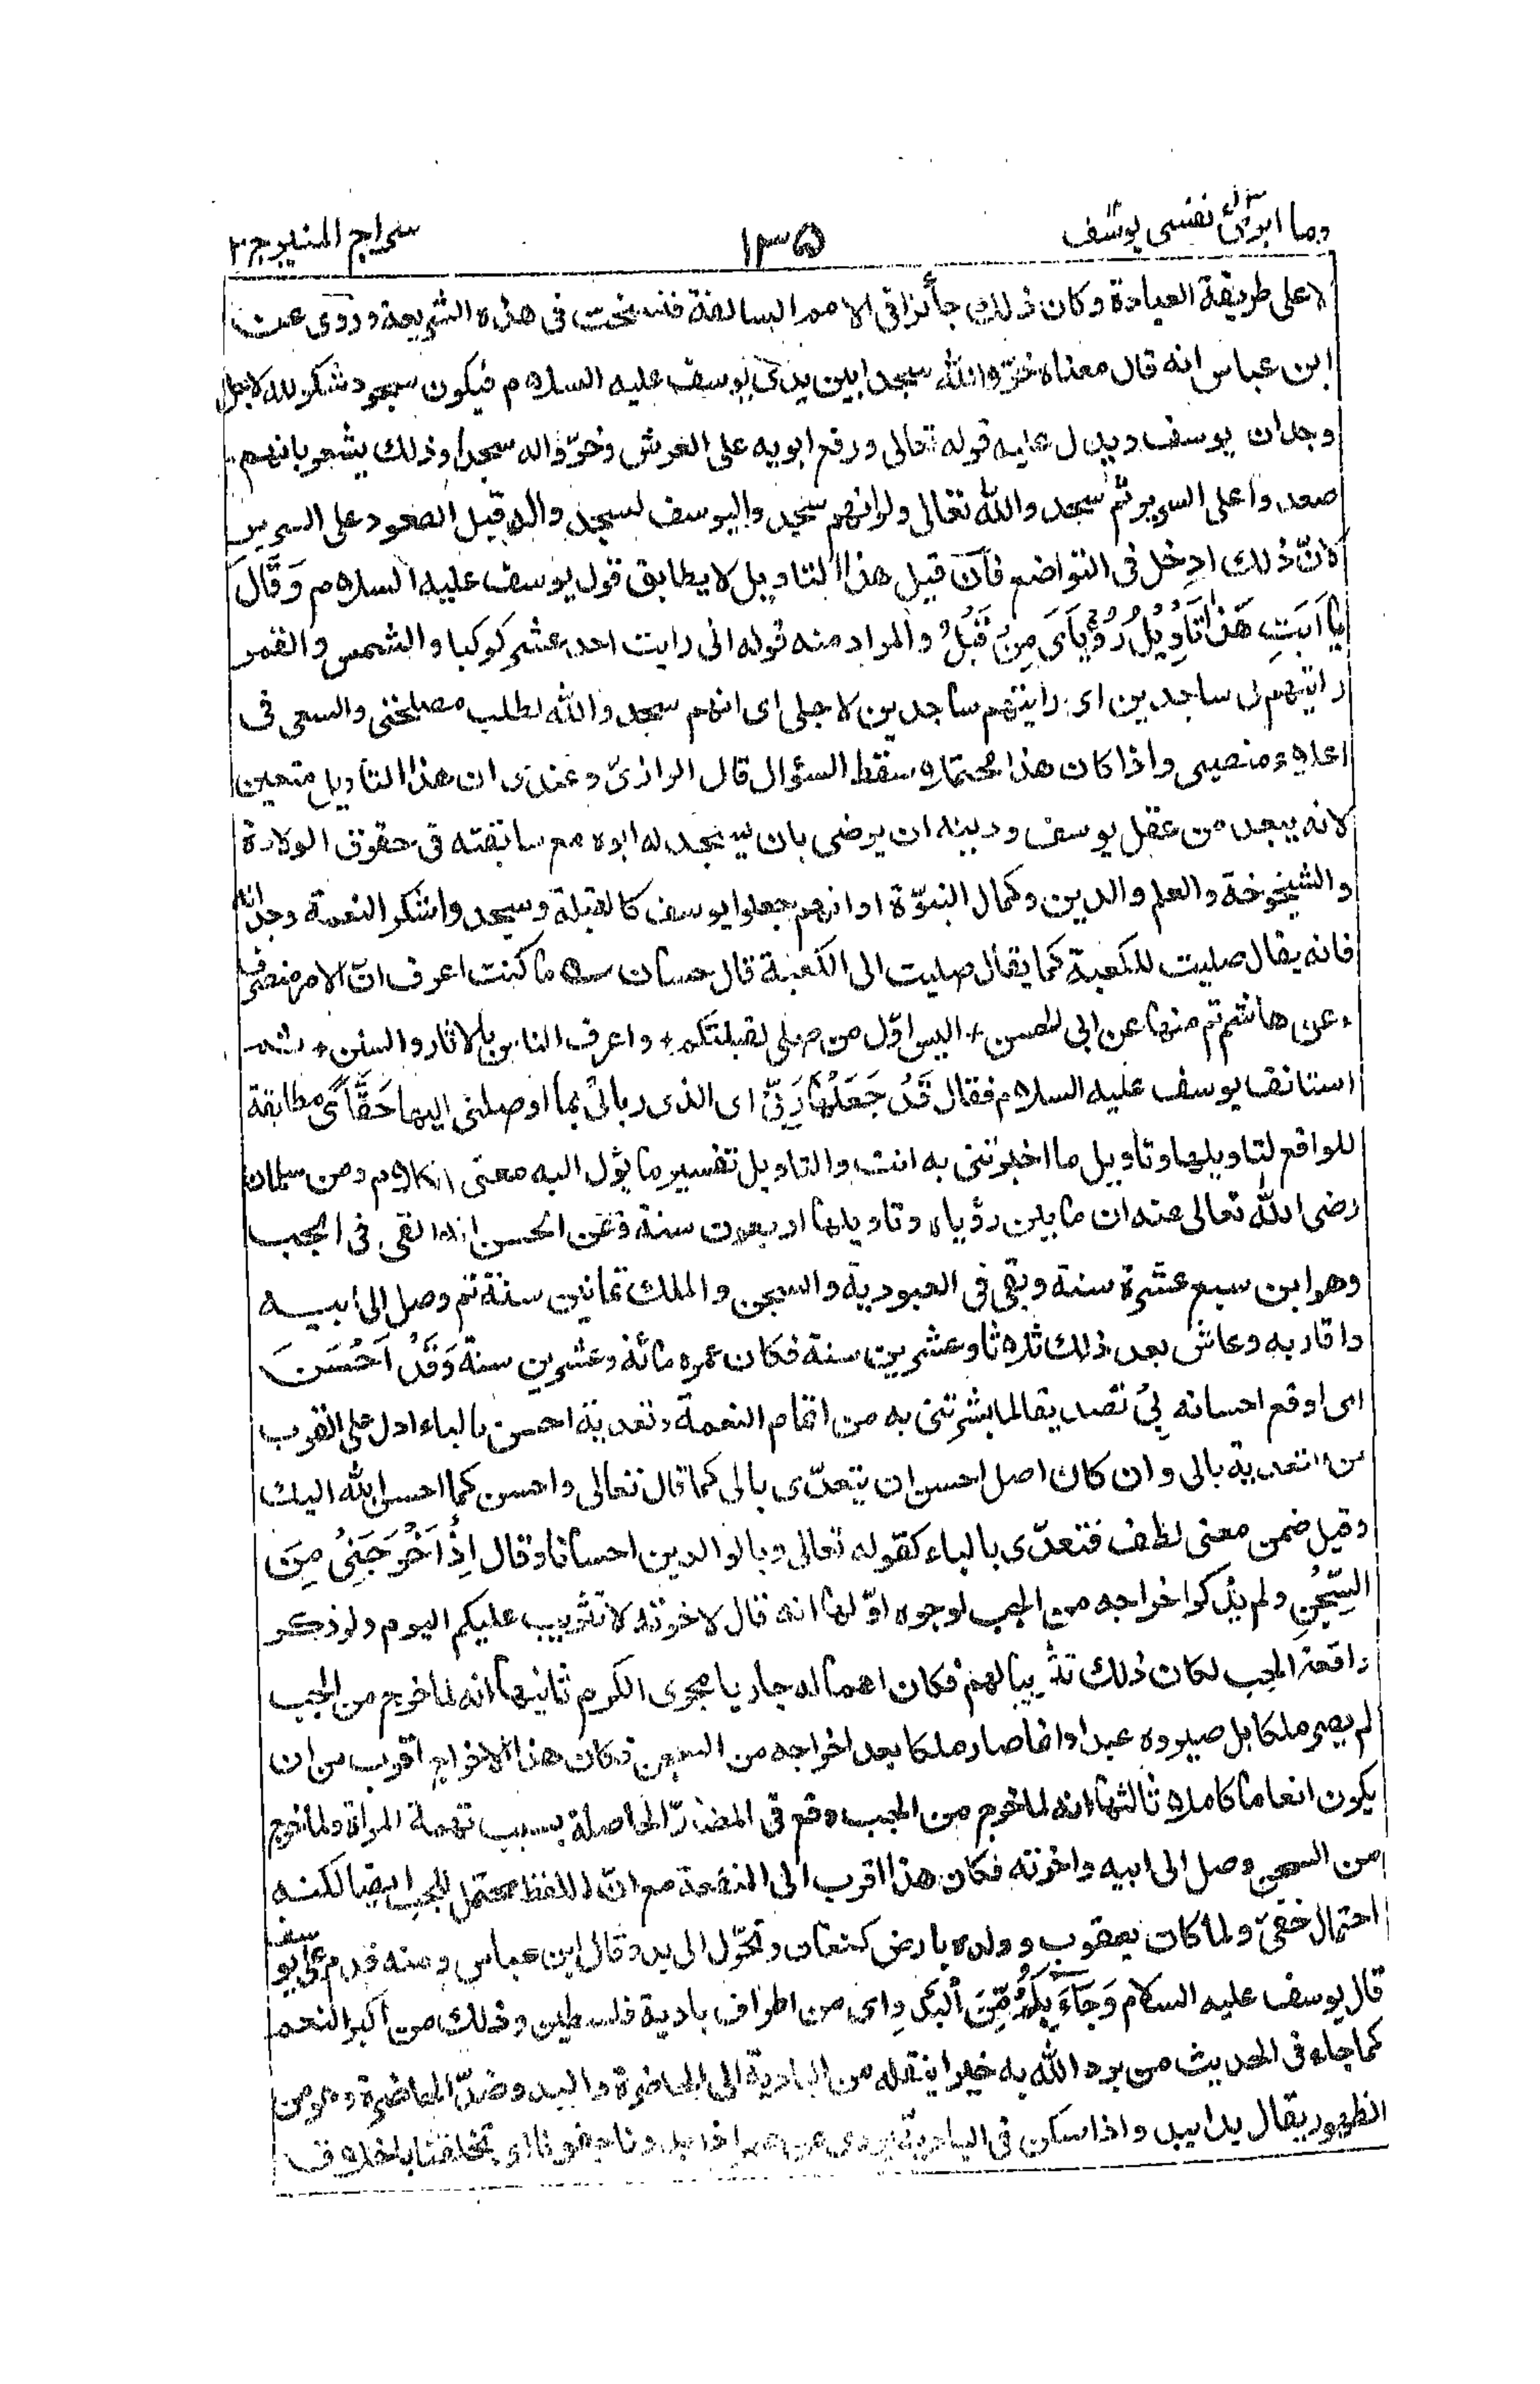 وما ابرئ نفسى يوسف ١٣٥ سراج المنير ج ٢
لا على طريقة العبادة وكان ذلك جائزا فى الامم السالفة فنسخت فى هذه الشريعة وروى عن
ابن عباس انه قال معناه خرّوا لله سجدا بين يدى يوسف عليه السلام فيكون سجود شكر لله لاجل
وجدان يوسف ويدل عليه قوله تعالى ورفع ابويه على العرش وخرّوا له سجدا وذلك يشعر بانهم
صعدوا على السرير ثم سجدوا لله تعالى ولو انهم سجدوا ليوسف لسجدوا له قبل الصعود على السرير
لانّ ذلك ادخل فى التواضع فان قيل هذا التاويل لا يطابق قول يوسف عليه السلام وَقَالَ
يٰٓاَبَتِ هٰذَا تَاْوِيْلُ رُءْيَايَ مِنْ قَبْلُ والمراد منه قوله انى رايت احد عشر كوكبا والشمس والقمر
رايتهم لى ساجدين اى رايتهم ساجدين لاجلى اى انهم سجدوا لله لطلب مصلحتى والسعى فى
اعلاء منصبى واذا كان هذا محتملا سقط السؤال قال الرازىّ وعندى ان هذا التاويل متعين
لانه يبعد من عقل يوسف ودينه ان يرضى بان يسجد له ابوه مع سابقته فى حقوق الولادة
والشيخوخة والعلم والدين وكمال النبوّة او انهم جعلوا يوسف كالقبلة وسجدوا شكر النعمة وجدانه
فانه يقال صليت للكعبة كما يقال صليت الى الكعبة قال حسان ؎ ما كنت اعرف انّ الامر منصرف
٭ عن هاشم ثم منها عن ابى الحسن ٭ اليس اوّل من صلى لقبلتكم ٭ واعرف الناس بالاثار والسنن ٭ ثم
استانف يوسف عليه السلام فقال قَدْ جَعَلَهَا رَبِّيْ اى الذى ربانى بما اوصلنى اليها حَقًّا اى مطابقة
للواقع لتاويلها وتاويل ما اخبرتنى به انت والتاويل تفسير ما يؤل اليه معنى الكلام وعن سلمان
رضى الله تعالى عنه ان ما بين رؤياه وتاويلها اربعون سنة وعن الحسن انه القى فى الجب
وهو ابن سبع عشرة سنة وبقى فى العبودية والسجن والملك ثمانين سنة ثم وصل الى ابيه
واقاربه وعاش بعد ذلك ثلاثا وعشرين سنة فكان عمره مائة وعشرين سنة وَقَدْ اَحْسَنَ
اى اوقع احسانه بِيْ تصديقا لما بشرتنى به من اتمام النعمة وتعدية احسن بالباء ادل على القرب
من التعدية بالى وان كان اصل احسن ان يتعدّى بالى كما قال تعالى واحسن كما احسن الله اليك
وقيل ضمن معنى لطف فتعدّى بالباء كقوله تعالى وبالوالدين احسانا وقال اِذْ اَخْرَجَنِيْ مِنَ
السِّجْنِ ولم يذكر اخراجه من الجب لوجوه اوّلها انه قال لاخوته لا تثريب عليكم اليوم ولو ذكر
واقعة الجب لكان ذلك تثريبا لهم فكان اهماله جاريا مجرى الكرم ثانيها انه لما خرج من الجب
لم يصر ملكا بل صيروه عبدا وانما صار ملكا بعد اخراجه من السجن فكان هذا الاخراج اقرب من ان
يكون انعاما كاملا ثالثها انه لما خرج من الجب وقع فى المضارّ الحاصلة بسبب تهمة المراة ولما خرج
من السجن وصل الى ابيه واخوته فكان هذا اقرب الى المنفعة مع انّ اللفظ محتمل للجب ايضا لكنه
احتمال خفىّ ولما كان يعقوب وولده بارض كنعان وتحوّل الى بدو قال ابن عباس ومنه قدم على يوسف
قال يوسف عليه السلام وَجَآءَ بِكُمْ مِّنَ الْبَدْوِ اى من اطراف بادية فلسطين وذلك من اكبر النعم
كما جاء فى الحديث من يرد الله به خيرا ينقله من البادية الى الحاضرة والبدو ضدّ الحاضرة وهو من
الظهور يقال بدا يبدو اذا سكن فى البادية يروى عن عمر اذا بدونا جفونا اى تخلقنا باخلاق